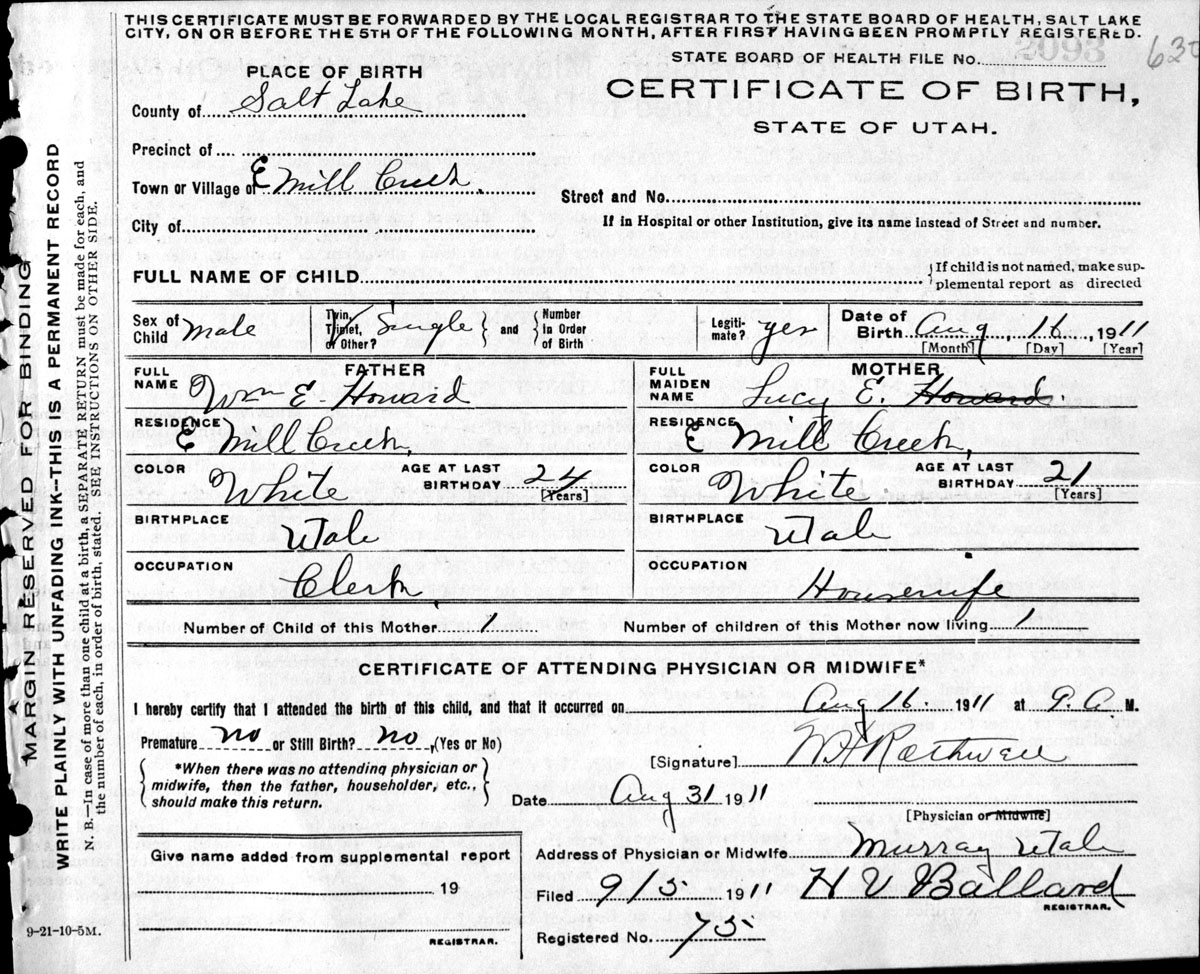 THIS CERTIFICATE MUST BE FORWARDED BY THE LOCAL REGISTRAR TO THE STATE BOARD OF HEALTH, SALT LAKE
CITY, ON OR BEFORE THE 5TH OF THE FOLLOWING MONTH, AFTER FIRST HAVING BEEN PROMPTLY REGISTERED.
STATE BOARD OF HEALTH FILE NO.
PLACE OF BIRTH
CERTIFICATE OF BIRTH,
STATE OF UTAH.
County of Salt Lake
Precinct of
Town or Village of E Mill Creek,
Street and No.
City of
If in Hospital or other Institution, give its name instead of Street and number.
FULL NAME OF CHILD
} If child is not named, make sup-
plemental report as directed
Sex of Child Male
Twin, Triplet, or Other? Single } and { Number In Order of Birth
Legiti-mate? yes
Date of Birth Aug 16, 1911
[Month] [Day] [Year]
FATHER
FULL NAME Wm E. Howard
RESIDENCE E Mill Creek,
COLOR White AGE AT LAST BIRTHDAY 24 [Years]
BIRTHPLACE Utah
OCCUPATION Clerk
MOTHER
FULL MAIDEN NAME Lucy E. Howard.
RESIDENCE E Mill Creek,
COLOR White AGE AT LAST BIRTHDAY 21 [Years]
BIRTHPLACE Utah
OCCUPATION Housewife
Number of Child of this Mother 1 Number of children of this Mother now living 1
CERTIFICATE OF ATTENDING PHYSICIAN OR MIDWIFE*
I hereby certify that I attended the birth of this child, and that it occurred on Aug 16. 1911 at 9. A M.
Premature no or Still Birth? no, (Yes or No)
[Signature] Rothwell
*When there was no attending physician or
midwife, then the father, householder, etc.,
should make this return.
Date Aug 31 1911
[Physician or Midwife]
Give name added from supplemental report
19
REGISTRAR.
Address of Physician or Midwife Murray Utah
Filed 9/5 1911 H V Ballard
REGISTRAR.
Registered No. 75
9-21-10-5M.
MARGIN RESERVED FOR BINDING
WRITE PLAINLY WITH UNFADING INK--THIS IS A PERMANENT RECORD
N. B.—In case of more than one child at a birth, a SEPARATE RETURN must be made for each, and
the number of each, in order of birth, stated. SEE INSTRUCTIONS ON OTHER SIDE.